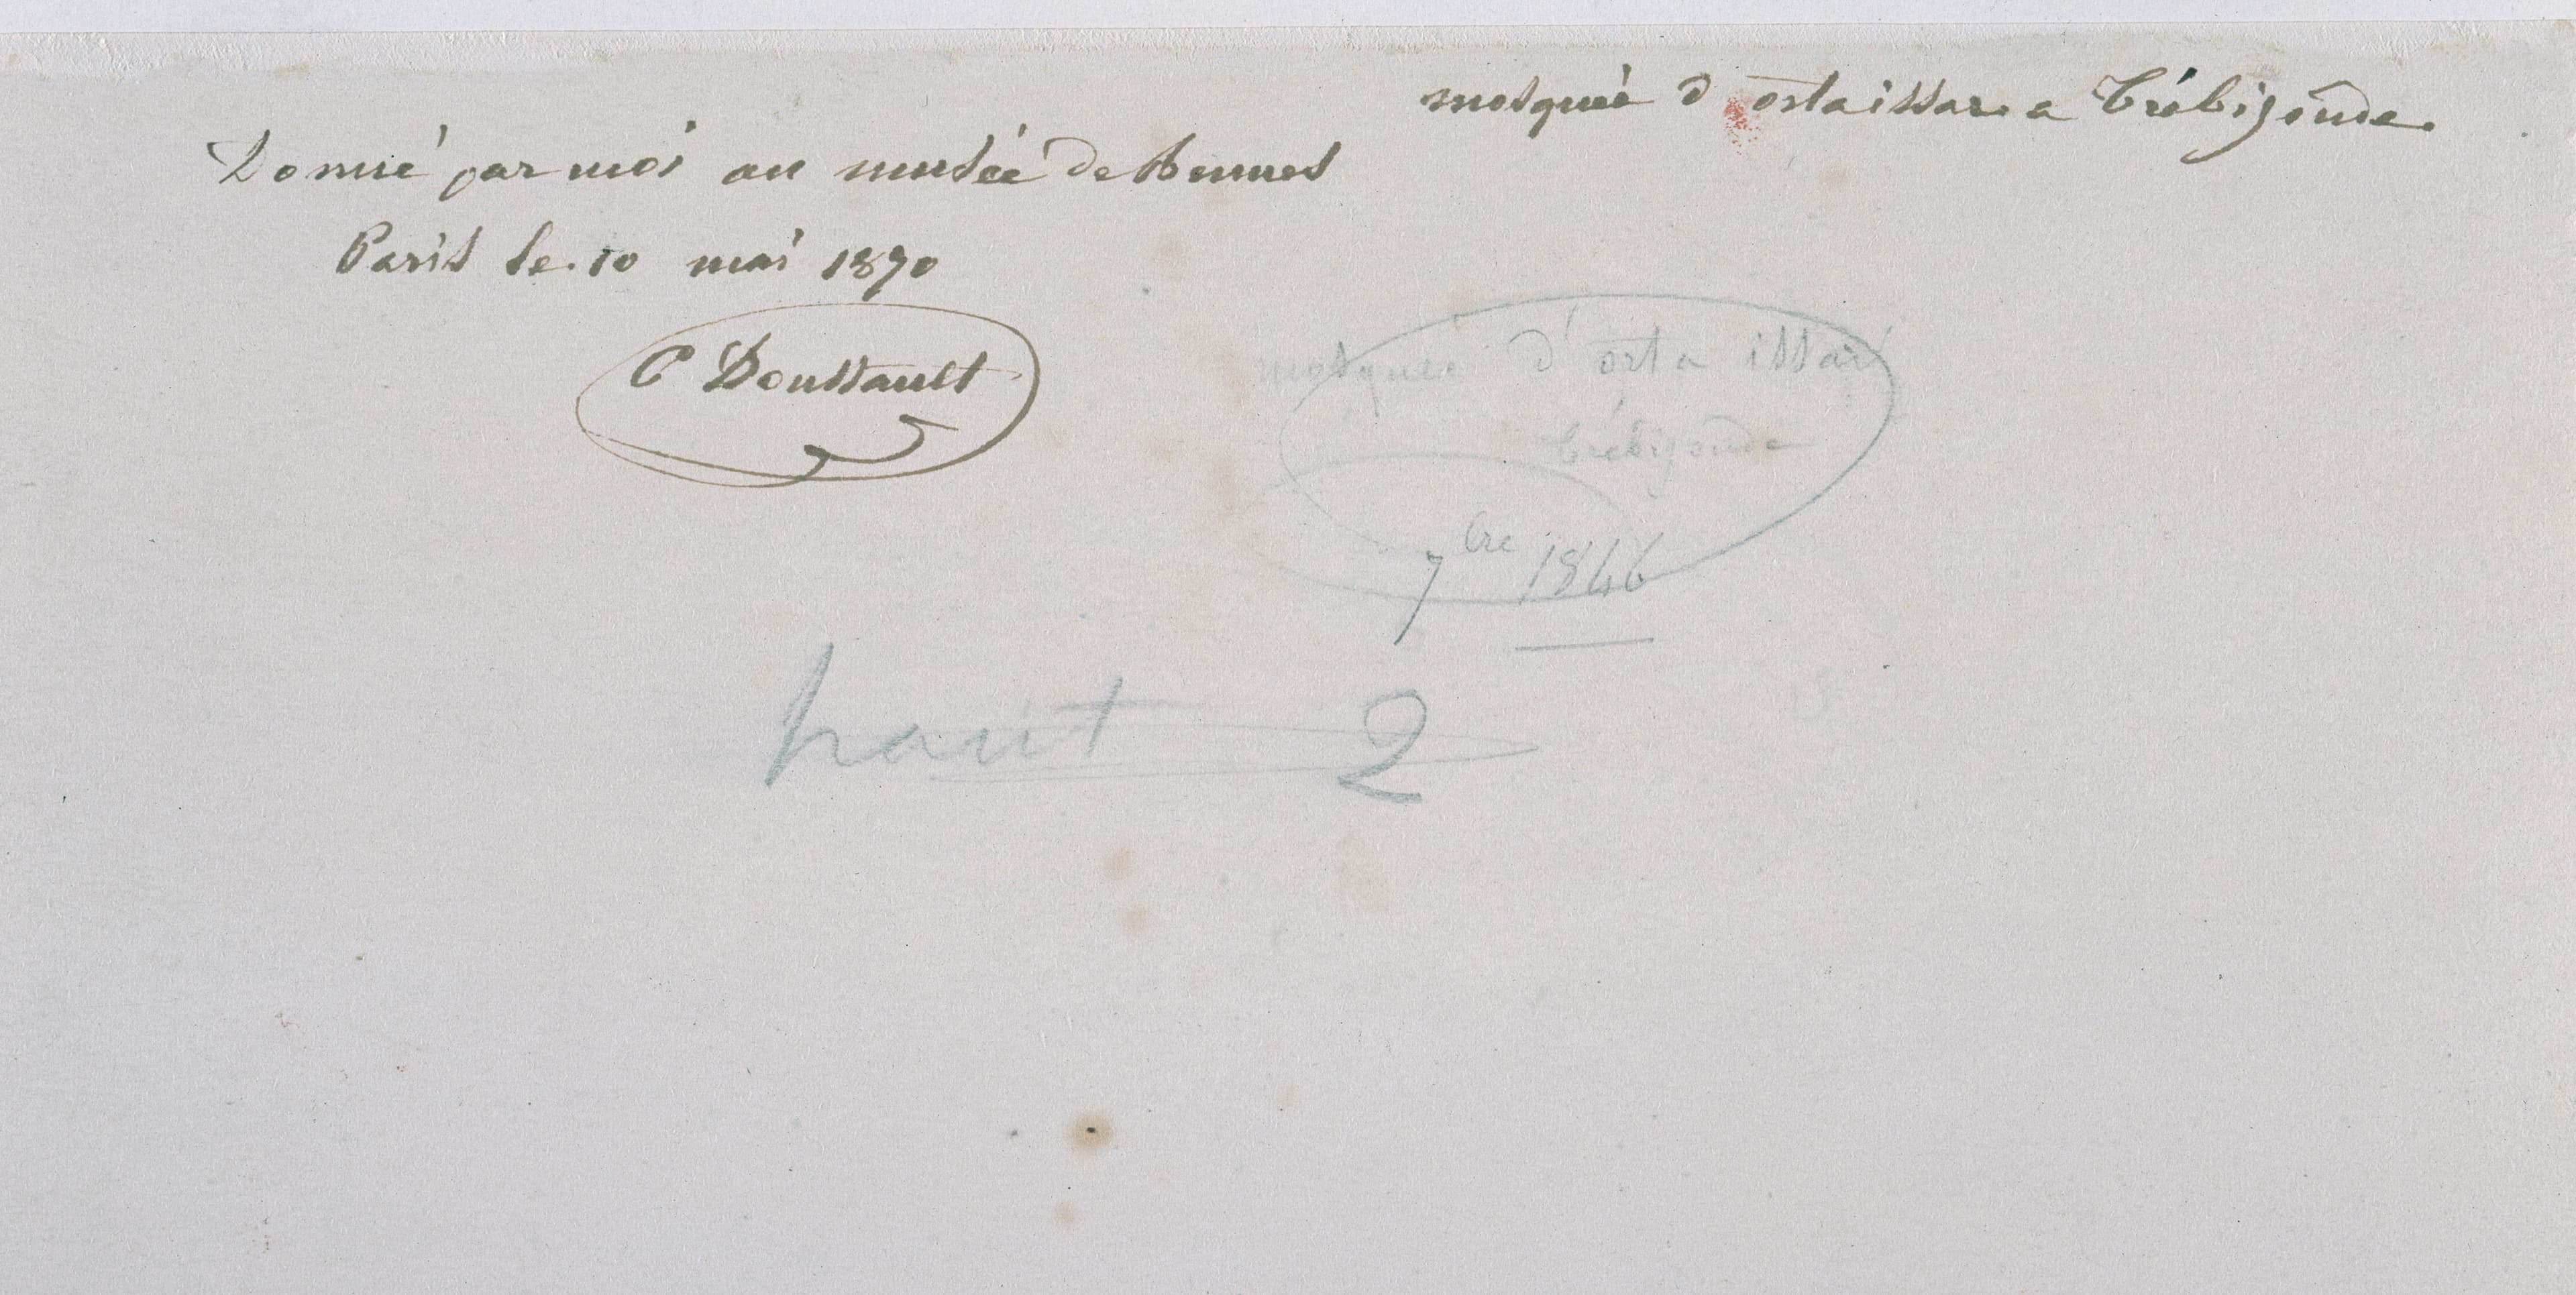 mosquée d ortaissar a Trébizonde.
Donné par moi au musée de Rennes
Paris le 10 mai 1870
C Doussault
mosquée d'orta issar
trébizonde
7bre 1846
haut 2